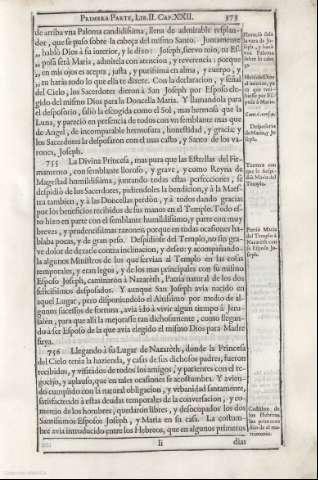 PRIMERA PARTE, LIB. II. CAP. XXII. 373
de arriba vna Paloma candidissima, llena de admirable resplan-
dor, que se puso sobre la cabeça del mismo Santo. Juntamente
habló Dios à su interior, y le dixo: Joseph, siervo mio, tu Es-
posa será Maria, admitela con atencion, y reverencia: porque
en mis ojos es acepta, justa, y purissima en alma, y cuerpo, y
tu harás todo lo que ella te dixere. Con la declaracion, y señal
del Cielo, los Sacerdotes dieron à San Joseph por Esposo ele-
gido del mismo Dios para la Doncella Maria. Y llamandola para
el desposorio, salió la escogida como el Sol, mas hermosa que la
Luna, y pareció en presencia de todos con vn semblante mas que
de Angel, de incomparable hermosura, honestidad, y gracia: y
los Sacerdotes la desposaron con el mas casto, y Santo de los va-
rones, Joseph.
755 La Divina Princesa, mas pura que las Estrellas del Fir-
mamento, con semblante lloroso, y grave, y como Reyna de
Magestad humildissima, juntando todas estas perfecciones, se
despidió de los Sacerdotes, pidiendoles la bendicion, y à la Maes-
tra tambien, y à las Doncellas perdon, y à todos dando gracias
por los beneficios recibidos de sus manos en el Templo. Todo es-
to hizo en parte con el semblante humildissimo, y parte con muy
breves, y prudentissimas razones, porque en todas ocasiones ha-
blaba pocas, y de gran peso. Despidióse del Templo, no sin gra-
ve dolor de dexarle contra inclinacion, y deseo: y acompañandola
algunos Ministros de los que servian al Templo en las cosas
temporales, y eran legos, y de los mas principales con su mismo
Esposo Joseph, caminaron à Nazaréth, Patria natural de los dos
felicissimos desposados. Y aunque San Joseph avia nacido en
aquel Lugar, pero disponiendolo el Altissimo por medio de al-
gunos sucessos de fortuna, avia ido à vivir algun tiempo à Jeru-
salèn, para que alli la mejorasse tan dichosamente, como llegan-
do à ser Esposo de la que avia elegido el mismo Dios para Madre
suya.
756 Llegando à su Lugar de Nazaréth, donde la Princesa
del Cielo tenia la hazienda, y casas de sus dichosos padres, fueron
recibidos, y visitados de todos los amigos, y parientes con el re-
gocijo, y aplauso, que en tales ocasiones se acostumbra. Y avien-
do cumplido con la natural obligacion, y vrbanidad santamente,
satisfaciendo à estas deudas temporales de la conversacion, y co-
mercio de los hombres, quedaron libres, y desocupados los dos
Santissimos Esposos Joseph, y Maria en su casa. La costum-
bre avia introducido entre los Hebreos, que en algunos primeros
Ii dias
Desposorio
de Maria, y Jo-
seph.
Templo.
Parte Maria
del Templo à
Nazaréth con
su Esposo Jo-
seph.
Costumbre de
los Hebreos,